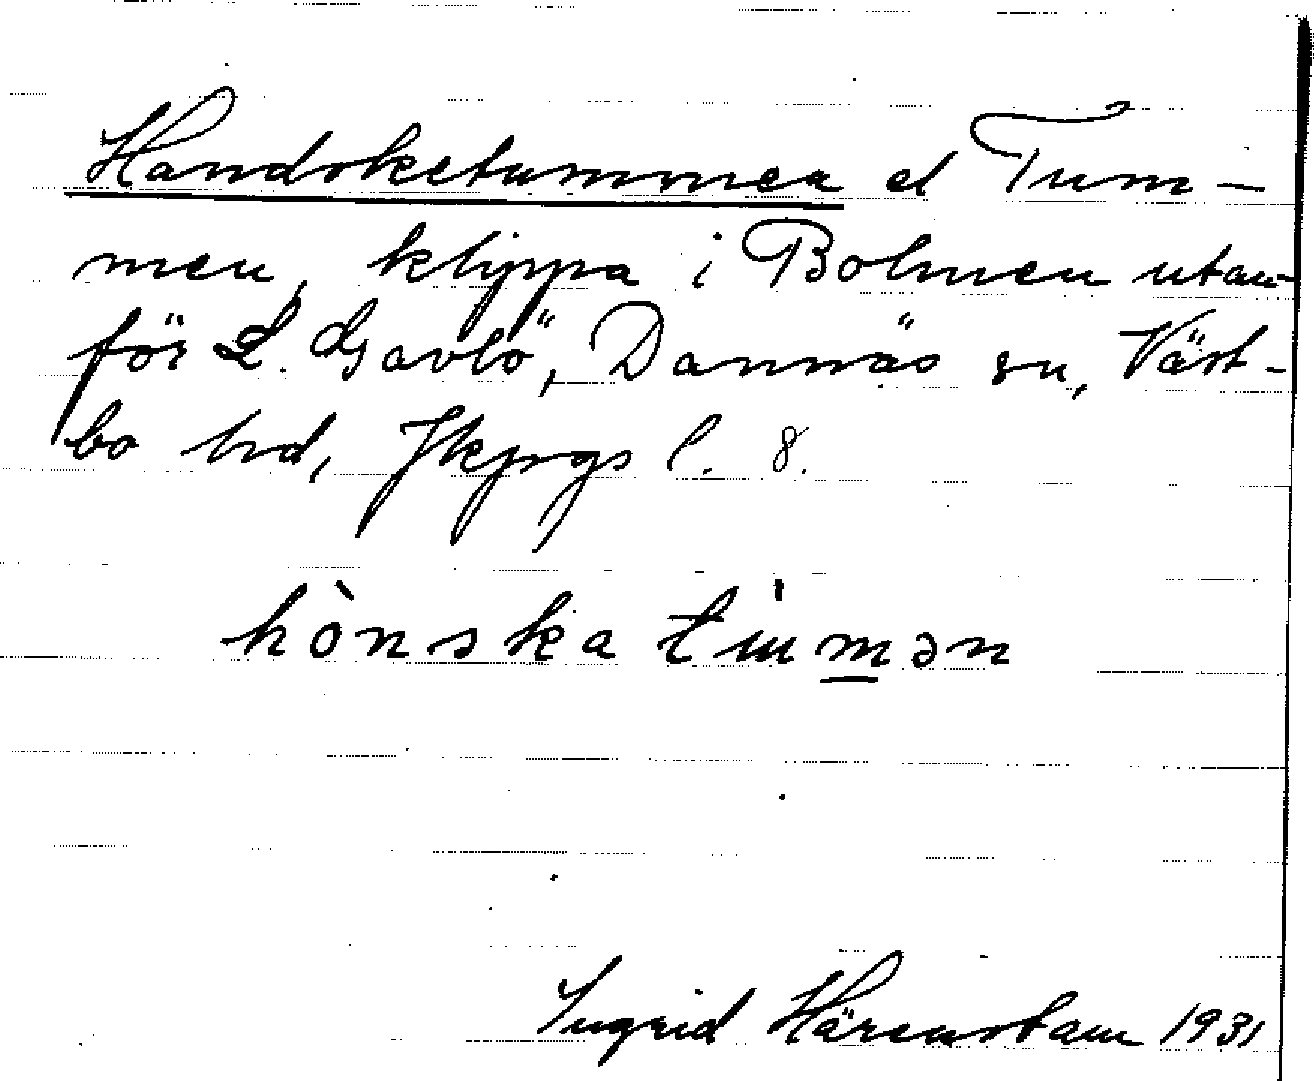 Handsketummen el Tum-
men, klippa i Bolmen utan-
för L. Gavlö, Dannäs sn, Väst-
bo hd, Jkpgs l. 8.
hònska tummən
Ingrid Härenstam 1931